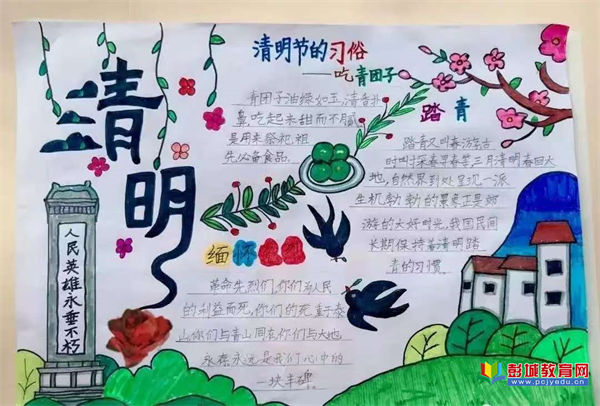 清明
清明节的习俗
——吃青团子
青团子油绿如玉,清香扑
鼻,吃起来甜而不腻
是用来祭祀祖
先必备食品
踏青
踏青又叫春游,古
时叫探春寻春等三月清明春回大
地,自然界到处呈现一派
生机勃勃的景象正是郊
游的大好时光,我国民间
长期保持着清明踏
青的习惯
缅怀
革命先烈们,你们为人民
的利益而死,你们的死重于泰
山你们与青山同在你们与大地
永存永远是我们心中的
一块丰碑
人民英雄永垂不朽
彭城教育网
www.pcjyedu.cn